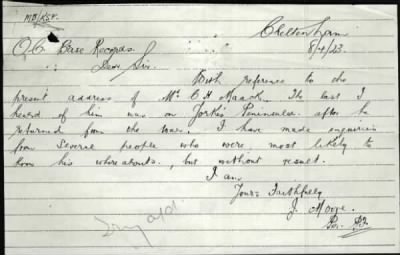 MB/KSP.
Cheltenham
O.C. Base Records.
8/4/23.
Dear Sir.
With reference to the
present address of Mr. C H The last I
heard of him was on Yorkes Peninsula. after he
returned from the war. I have made enquiries
from several people who were most likely to
know his whereabouts, but without result.
I am
Yours Faithfully
J. Moore.